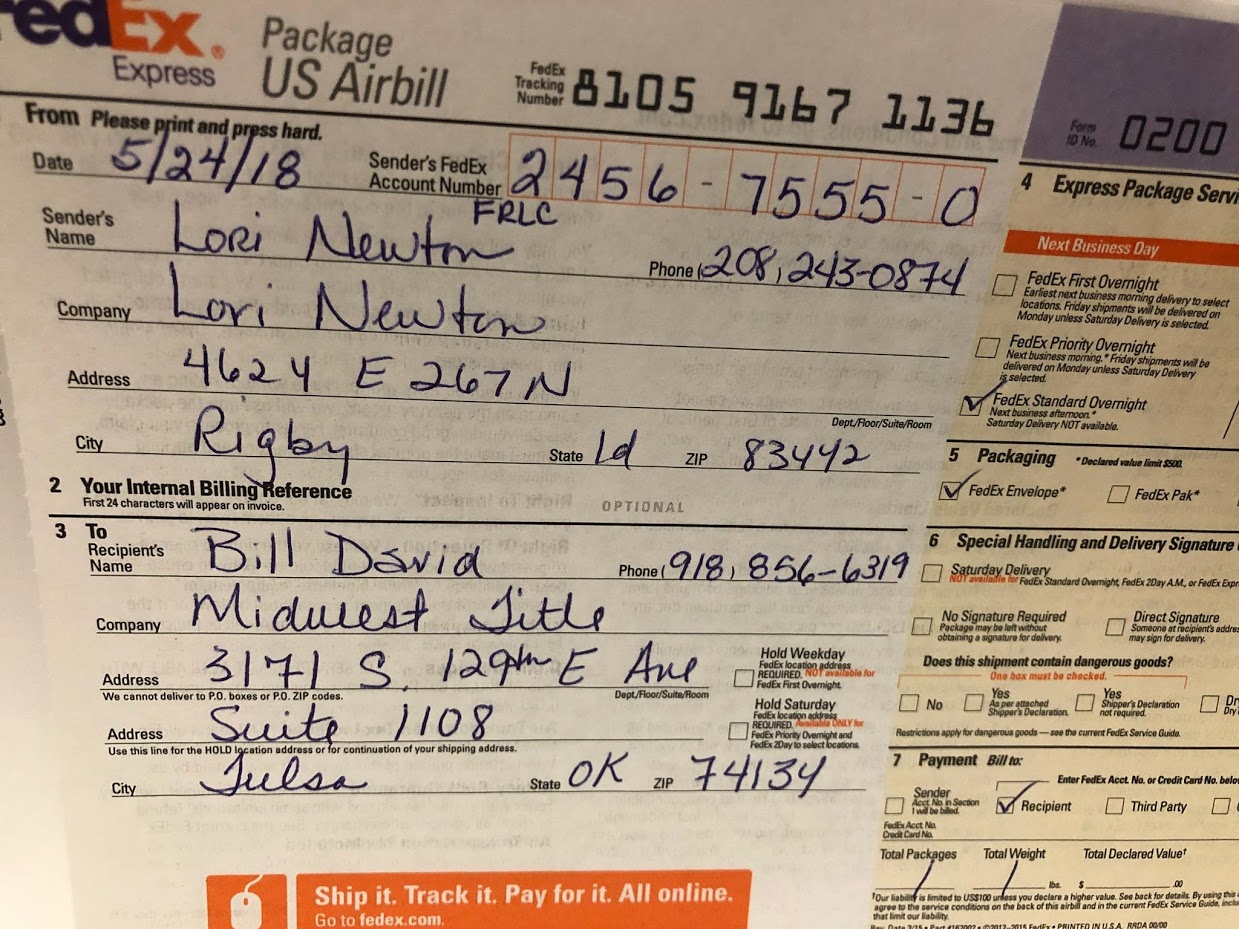 FedEx® Package
Express US Airbill
FedEx Tracking Number 8105 9167 1136
Form ID No. 0200
From Please print and press hard.
Date 5/24/18 Sender's FedEx Account Number 2456-7555-0
FRLC
Sender's Name Lori Newton Phone (208) 243-0874
Company Lori Newton
Address 4624 E 267 N
Dept./Floor/Suite/Room
City Rigby State Id ZIP 83442
2 Your Internal Billing Reference
First 24 characters will appear on invoice.
OPTIONAL
3 To
Recipient's Name Bill David Phone (918) 856-6319
Company Midwest Title
Address 3171 S. 129th E Ave
We cannot deliver to P.O. boxes or P.O. ZIP codes.
Dept./Floor/Suite/Room
Address Suite 1108
Use this line for the HOLD location address or for continuation of your shipping address.
City Tulsa State OK ZIP 74134
Hold Weekday
FedEx location address
REQUIRED. NOT available for
FedEx First Overnight.
Hold Saturday
FedEx location address
REQUIRED. Available ONLY for
FedEx Priority Overnight and
FedEx 2Day to select locations.
Ship it. Track it. Pay for it. All online.
Go to fedex.com.
4 Express Package Servi
Next Business Day
FedEx First Overnight
Earliest next business morning delivery to select
locations. Friday shipments will be delivered on
Monday unless Saturday Delivery is selected.
FedEx Priority Overnight
Next business morning.* Friday shipments will be
delivered on Monday unless Saturday Delivery
is selected.
FedEx Standard Overnight
Next business afternoon.*
Saturday Delivery NOT available.
5 Packaging * Declared value limit $500.
FedEx Envelope* FedEx Pak*
6 Special Handling and Delivery Signature
Saturday Delivery
NOT available for FedEx Standard Overnight, FedEx 2Day A.M., or FedEx Expr
No Signature Required
Package may be left without
obtaining a signature for delivery.
Direct Signature
Someone at recipient's addre
may sign for delivery.
Does this shipment contain dangerous goods?
One box must be checked.
No
Yes
As per attached
Shipper's Declaration.
Yes
Shipper's Declaration
not required.
Dr
Dry
Restrictions apply for dangerous goods — see the current FedEx Service Guide.
7 Payment Bill to:
Enter FedEx Acct. No. or Credit Card No. belo
Sender
Acct. No. in Section
1 will be billed.
Recipient Third Party
FedEx Acct. No.
Credit Card No.
Total Packages Total Weight Total Declared Value†
1 1 lbs. $ .00
†Our liability is limited to US$100 unless you declare a higher value. See back for details. By using this
agree to the service conditions on the back of this airbill and in the current FedEx Service Guide, inclu
that limit our liability.
Rev. Date 3/15 • Part #167002 • ©2012–2015 FedEx • PRINTED IN U.S.A. RRDA 00/00